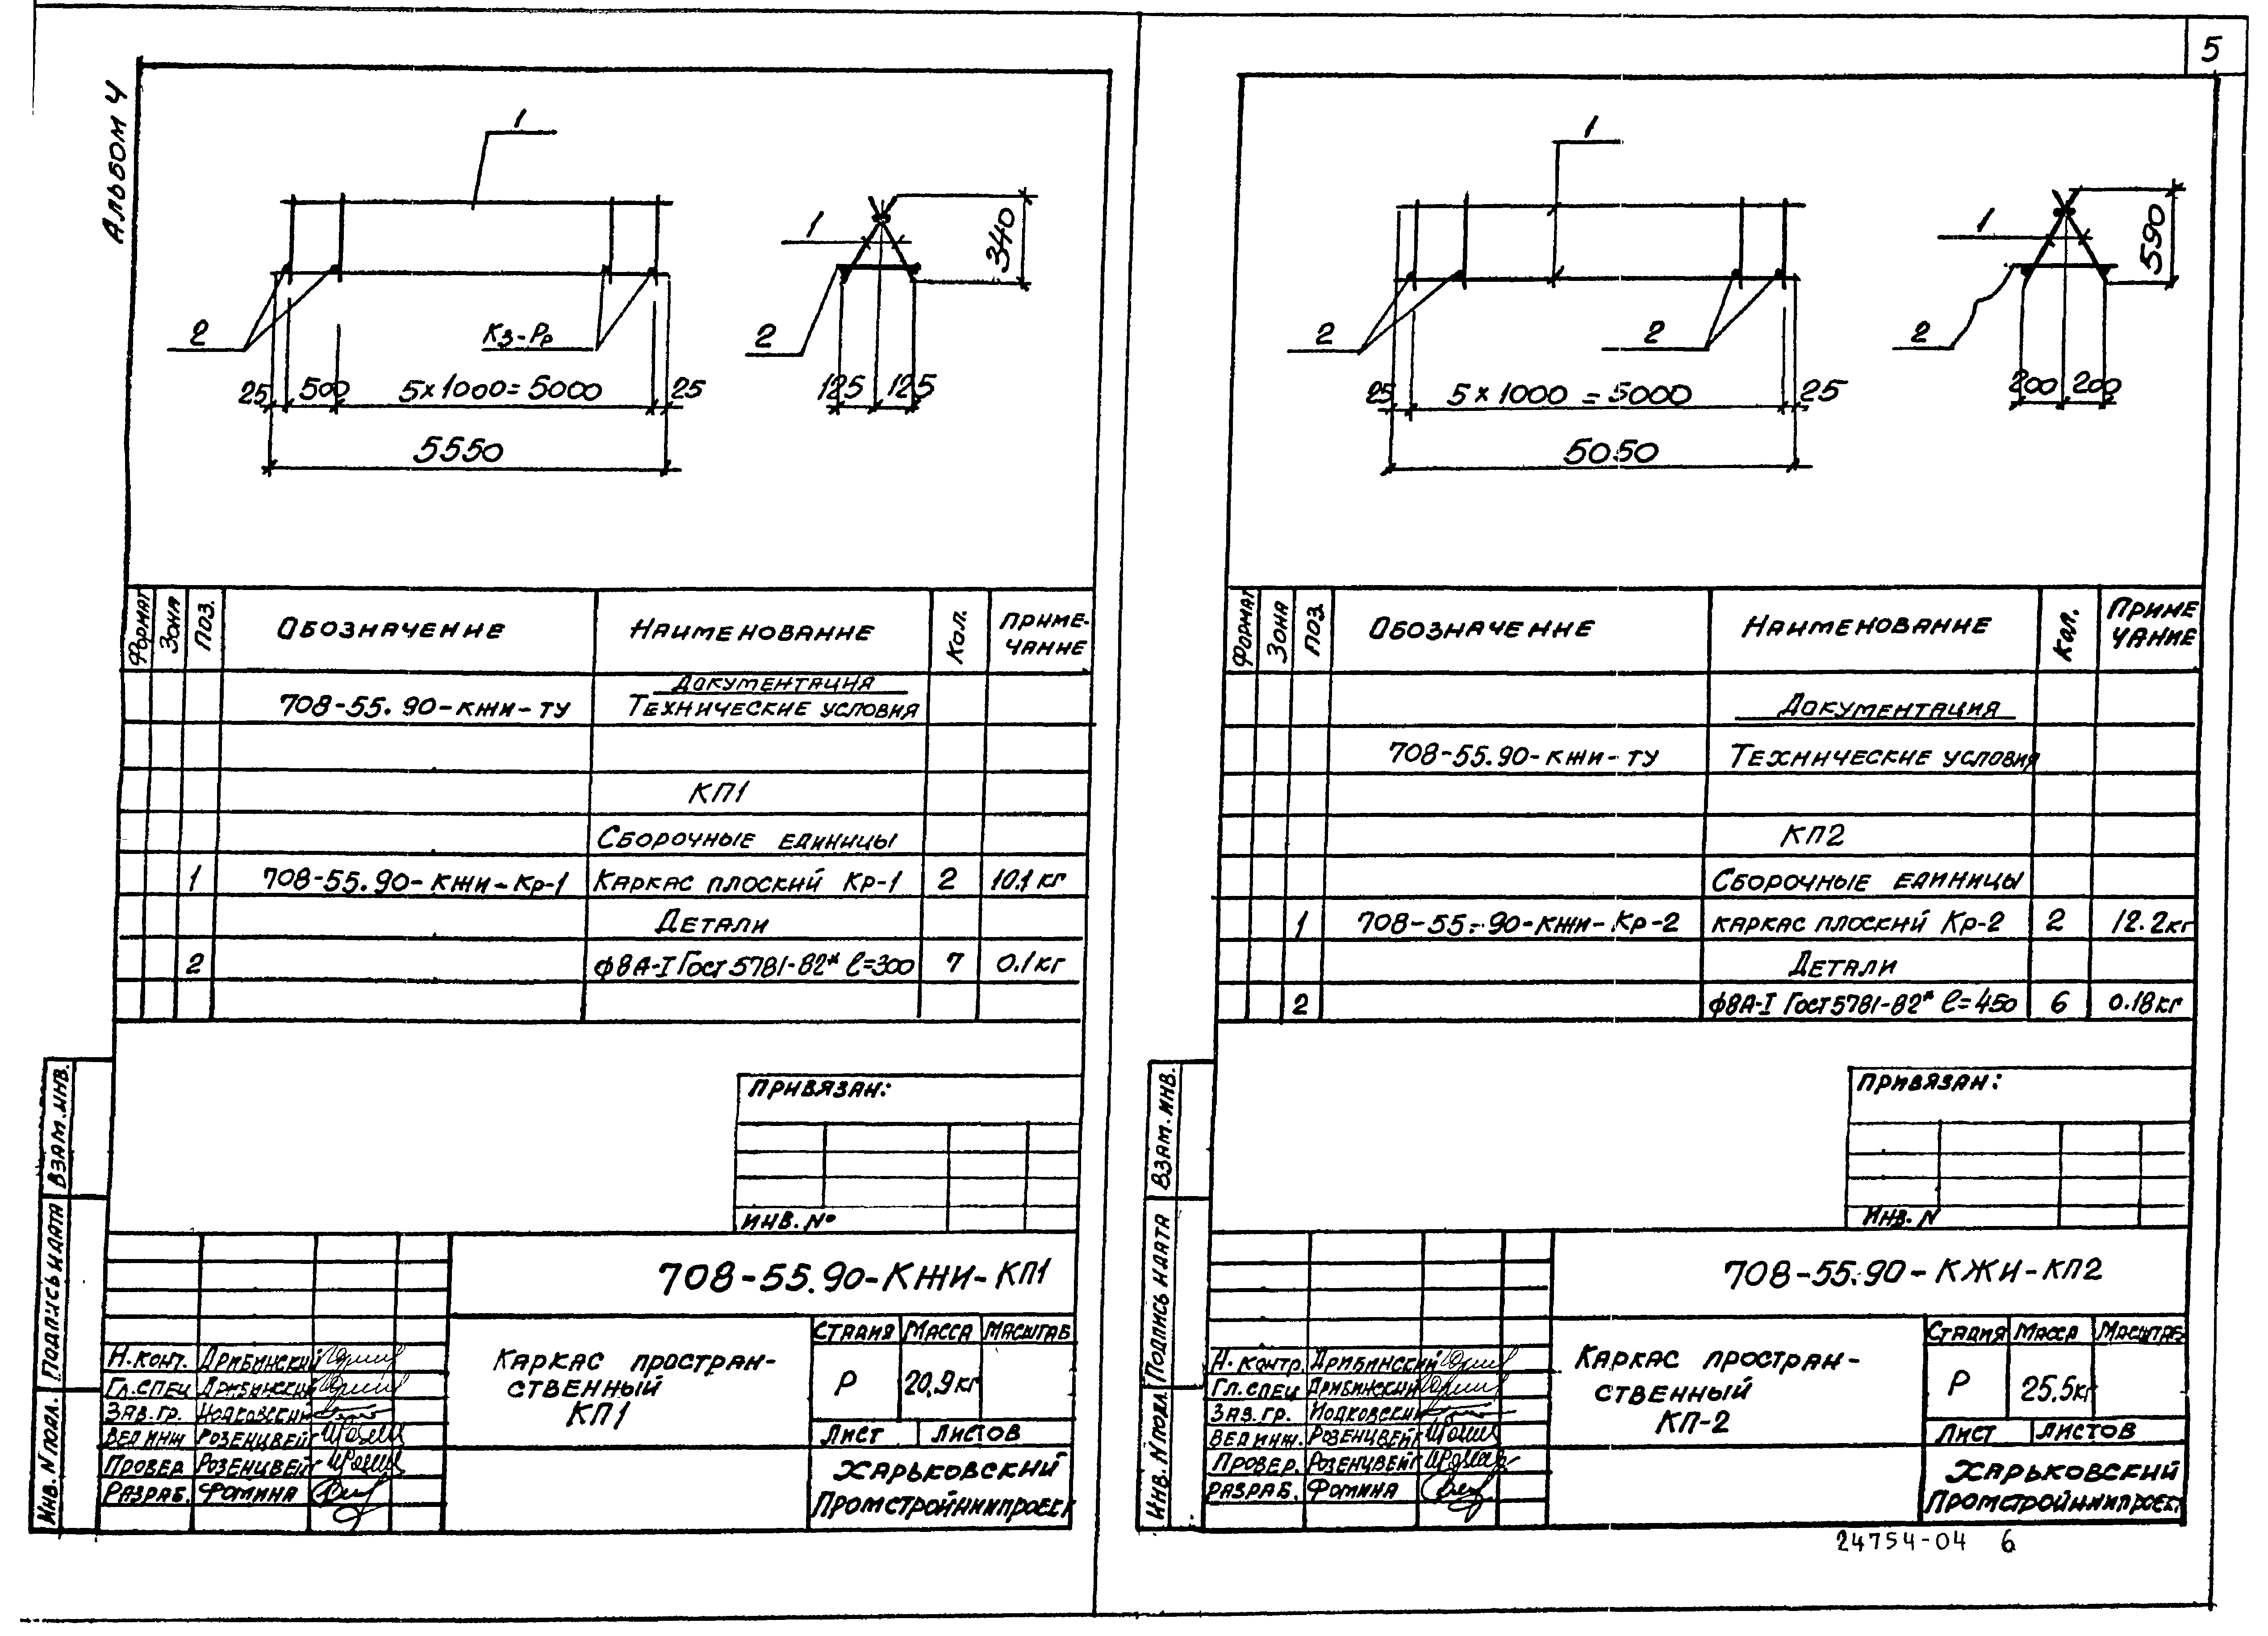 5
Альбом 4
1
1
340
2
Кз-Рр
2
25 500 5×1000=5000 25
125 125
5550
Формат Зона Поз. Обозначение Наименование Кол. Приме-
чание
Документация
708-55.90-КЖИ-ТУ Технические условия
КП1
Сборочные единицы
1 708-55.90-КЖИ-Кр-1 Каркас плоский Кр-1 2 10.1 кг
Детали
2 ф8А-I Гост 5781-82* ℓ=300 7 0.1 кг
Привязан:
Инв. №
Взам. инв.
Подпись и дата
Инв. N подл.
708-55.90-КЖИ-КП1
Стадия Масса Масштаб
Каркас простран-
ственный
КП1
Р 20,9 кг
Лист Листов
Харьковский
Промстройниипроект
Н. конт. Дрибинский
Гл. спец Дрибинский
Зав. гр. Иодковский
Вед инж Розенцвейг
Провер Розенцвейг
Разраб. Фомина
1
1
590
2
2
2
25 5×1000=5000 25
200 200
5050
Формат Зона Поз. Обозначение Наименование Кол. Приме
чание
Документация
708-55.90-КЖИ-ТУ Технические условия
КП2
Сборочные единицы
1 708-55.90-КЖИ-Кр-2 каркас плоский Кр-2 2 12.2 кг
Детали
2 ф8А-I Гост 5781-82* ℓ=450 6 0.18 кг
Привязан:
Инв. N
Взам. инв.
Подпись и дата
Инв. N подл.
708-55.90-КЖИ-КП2
Стадия Масса Масштаб
Каркас простран-
ственный
КП-2
Р 25.5 кг
Лист Листов
Харьковский
Промстройниипроект
Н. контр. Дрибинский
Гл. спец Дрибинский
Зав. гр. Иодковский
Вед инж. Розенцвейг
Провер. Розенцвейг
Разраб. Фомина
24754-04 6